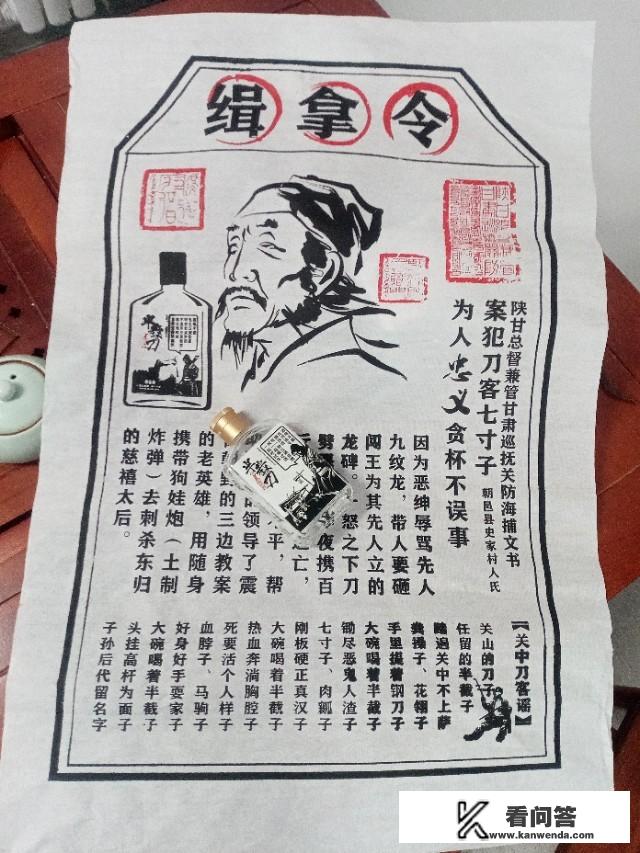 缉拿令
陕甘总督兼管甘肃巡抚关防海捕文书
案犯刀客七寸子 朝邑县史家村人氏
为人忠义贪杯不误事
因为恶绅辱骂先人
九纹龙，带人要砸
闯王为其先人立的
龙碑。怒之下刀
劈夜携百
亡，
平，帮
领导了震
的三边教案
的老英雄，用随身
携带狗娃炮（土制
炸弹）去刺杀东归
的慈禧太后。
【关中刀客谣】
关山的刀子
任留的半截子
关中不上萨
子、花翎子
手里提着钢刀子
大碗喝着半截子
锄尽恶鬼人渣子
七寸子、肉瓤子
刚板硬正真汉子
大碗喝着半截子
热血奔淌胸腔子
死要活个人样子
血脖子、马驹子
好身好手耍家子
大碗喝着半截子
头挂高杆为面子
子孙后代留名字
看问答
www.kanwenda.com